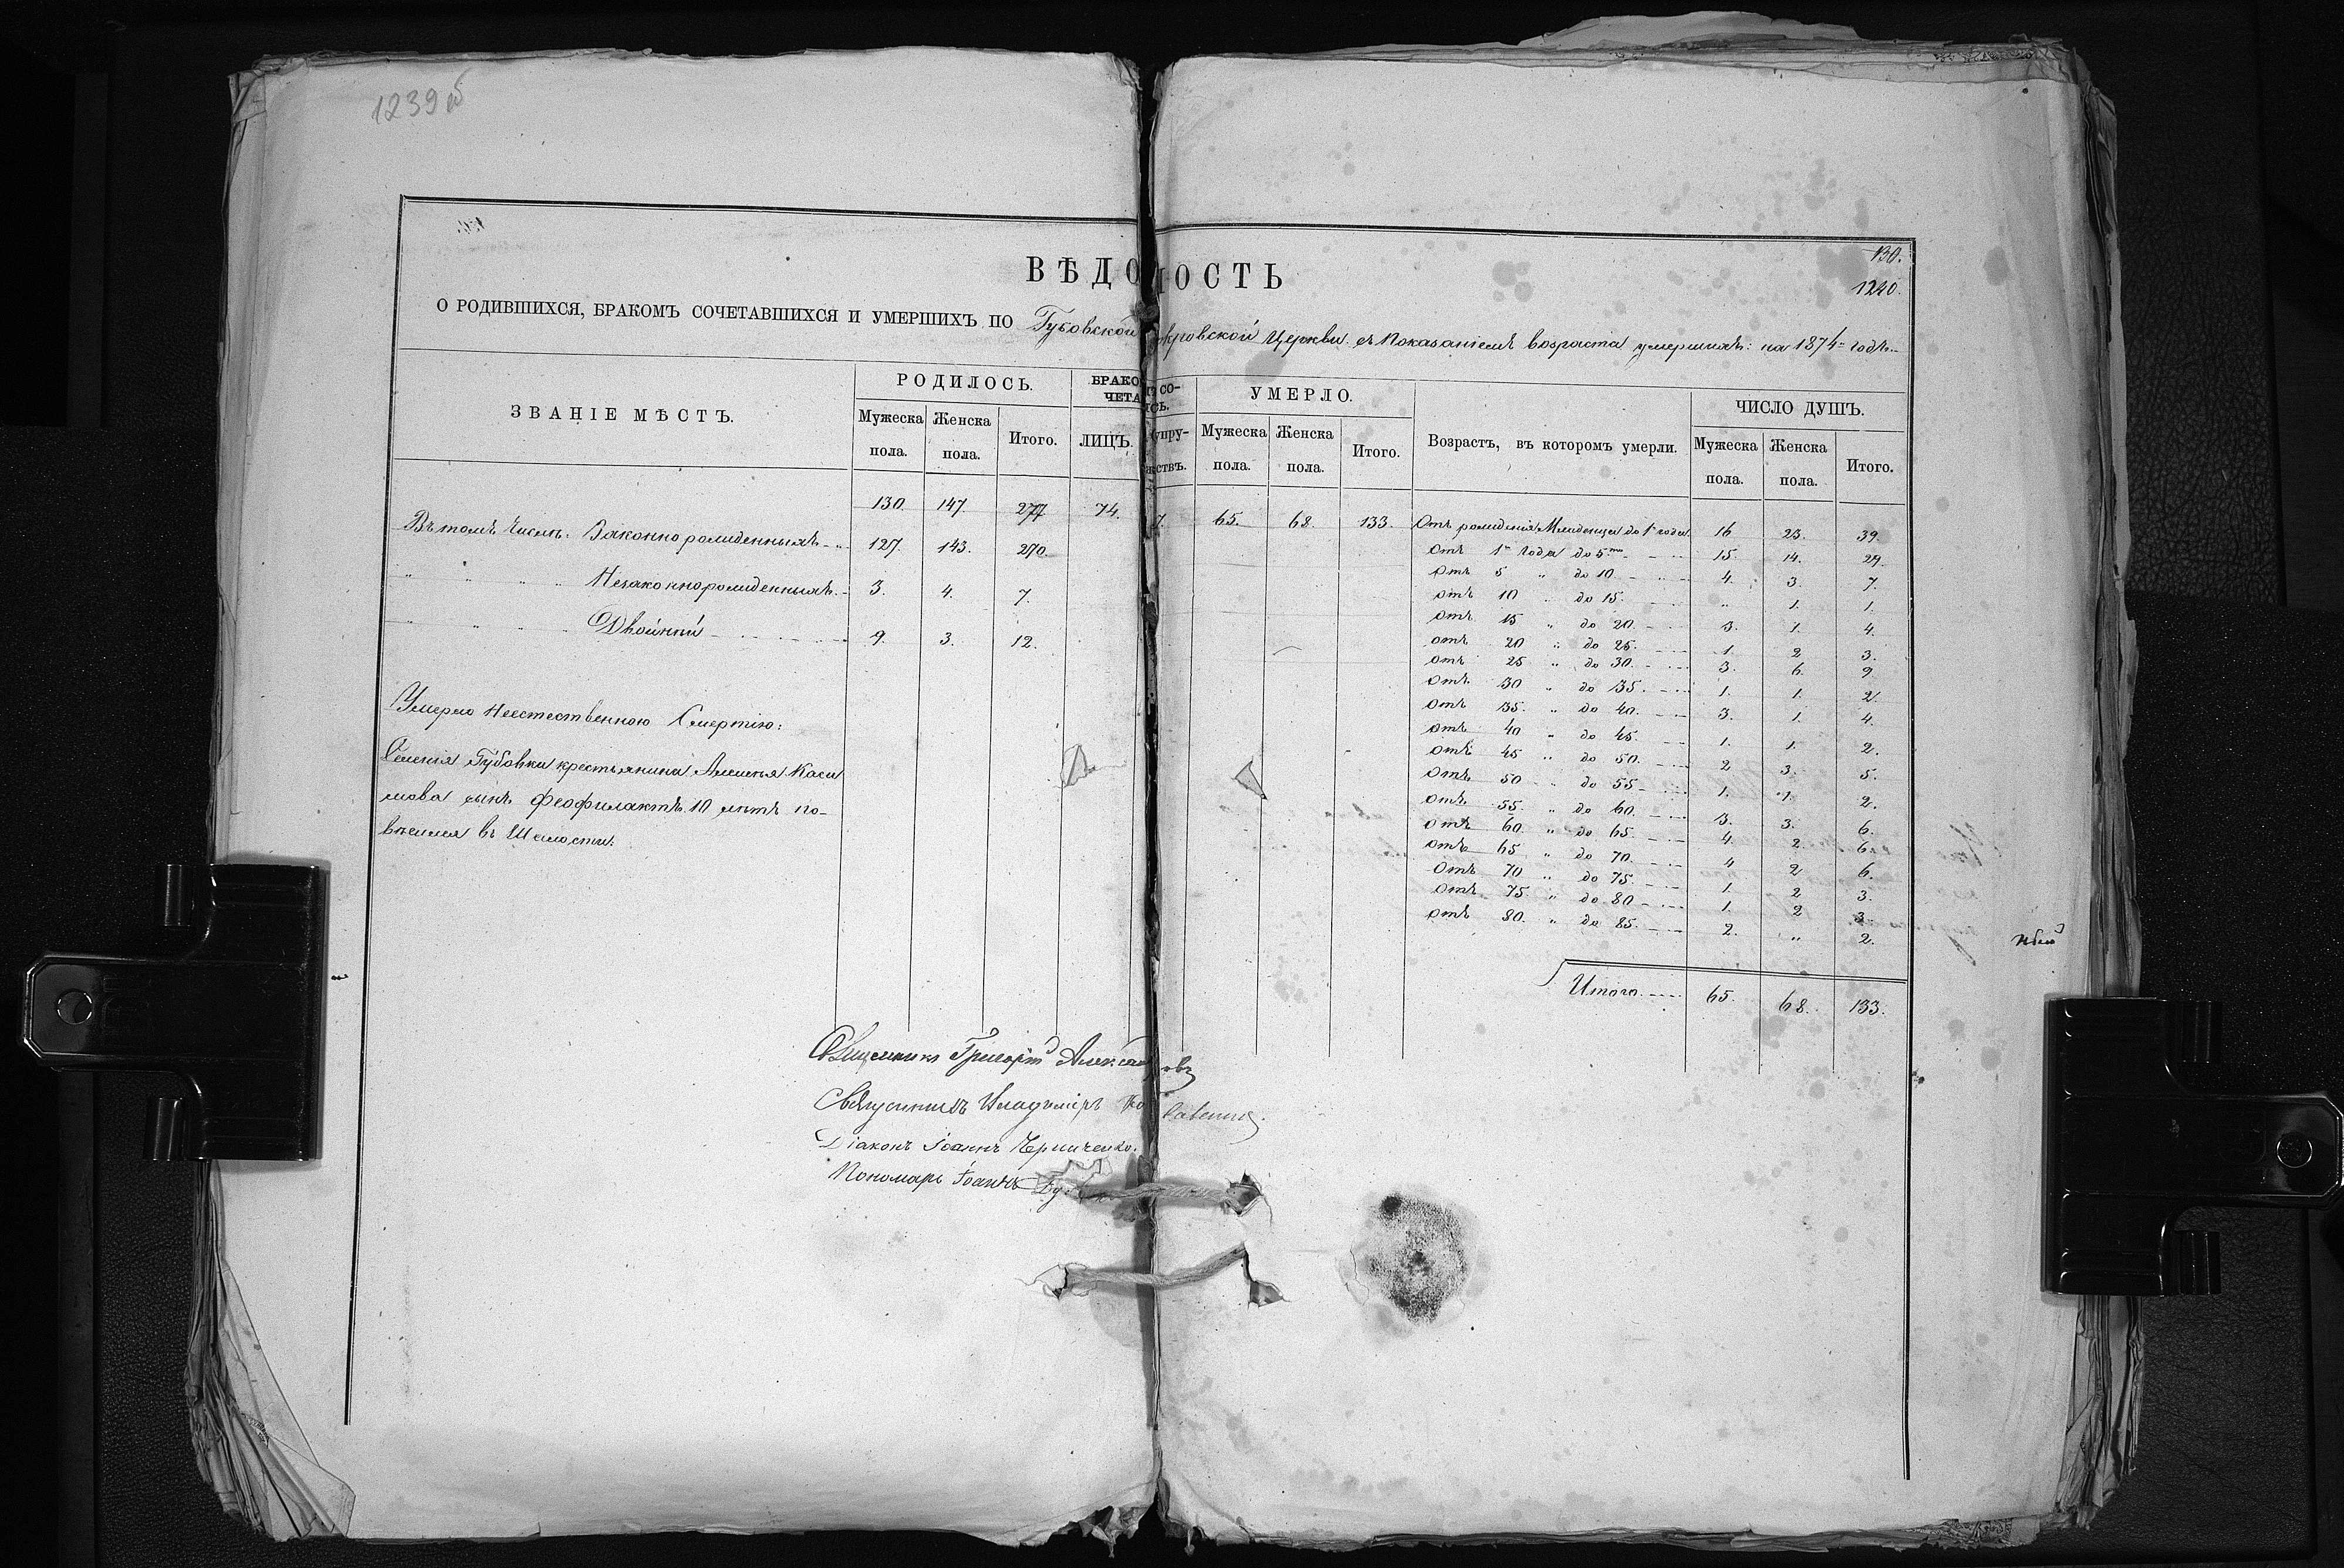 1239 об
130.
1240.
ВѢДОМОСТЬ
О РОДИВШИХСЯ, БРАКОМЪ СОЧЕТАВШИХСЯ И УМЕРШИХЪ ПО Губовской кровской Церкви съ Показаніемъ возраста умершихъ: на 1874= годъ.
ЗВАНІЕ МѢСТЪ. РОДИЛОСЬ. БРАКО СО- ЧЕТА СЬ. УМЕРЛО. Возрастъ, въ которомъ умерли. ЧИСЛО ДУШЪ.
Мужеска пола. Женска пола. Итого. ЛИЦЪ. Супру- жествъ. Мужеска пола. Женска пола. Итого. Мужеска пола. Женска пола. Итого.
130 147 277 74. 7. 65. 68. 133. Отъ рожденія Младенца до 1го года. 16 23. 39.
Въ томъ Числѣ: Законнорожденныхъ 127. 143. 270. отъ 1го Года до 5ти 15. 14. 29.
отъ 5 " до 10. 4. 3. 7.
" " " " Незаконнорожденныхъ 3. 4. 7. отъ 10 " до 15. " 1. 1.
отъ 15 " до 20. 3. 1. 4.
" " " " Двойни 9. 3. 12. отъ 20 " до 25. 1. 2 3.
отъ 25 " до 30. 3. 6. 9
отъ 30 " до 35. 1. 1. 2.
Умерло Неестественною Смертію: отъ 35. " до 40. 3. 1. 4.
отъ 40 " до 45. 1. 1. 2.
отъ 45 " до 50. 2 3. 5.
Селенія Губовки крестьянина Алексѣя Каси отъ 50 " до 55 1. 1. 2.
мова сынъ Феофилактъ 10 лѣтъ по- отъ 55. " до 60. 3. 3. 6.
отъ 60. " до 65. 4. 2. 6.
вѣсился въ Шалости. отъ 65 " до 70. 4 2 6.
отъ 70 " до 75. 1. 2 3.
отъ 75. " до 80 1. 2 3.
отъ 80. " до 85. 2. " 2.
Итого 65. 68. 133.
Священникъ Григорій
Священникъ Владиміръ
Діаконъ Іоаннъ Черниченко.
Пономарь Іоаннъ